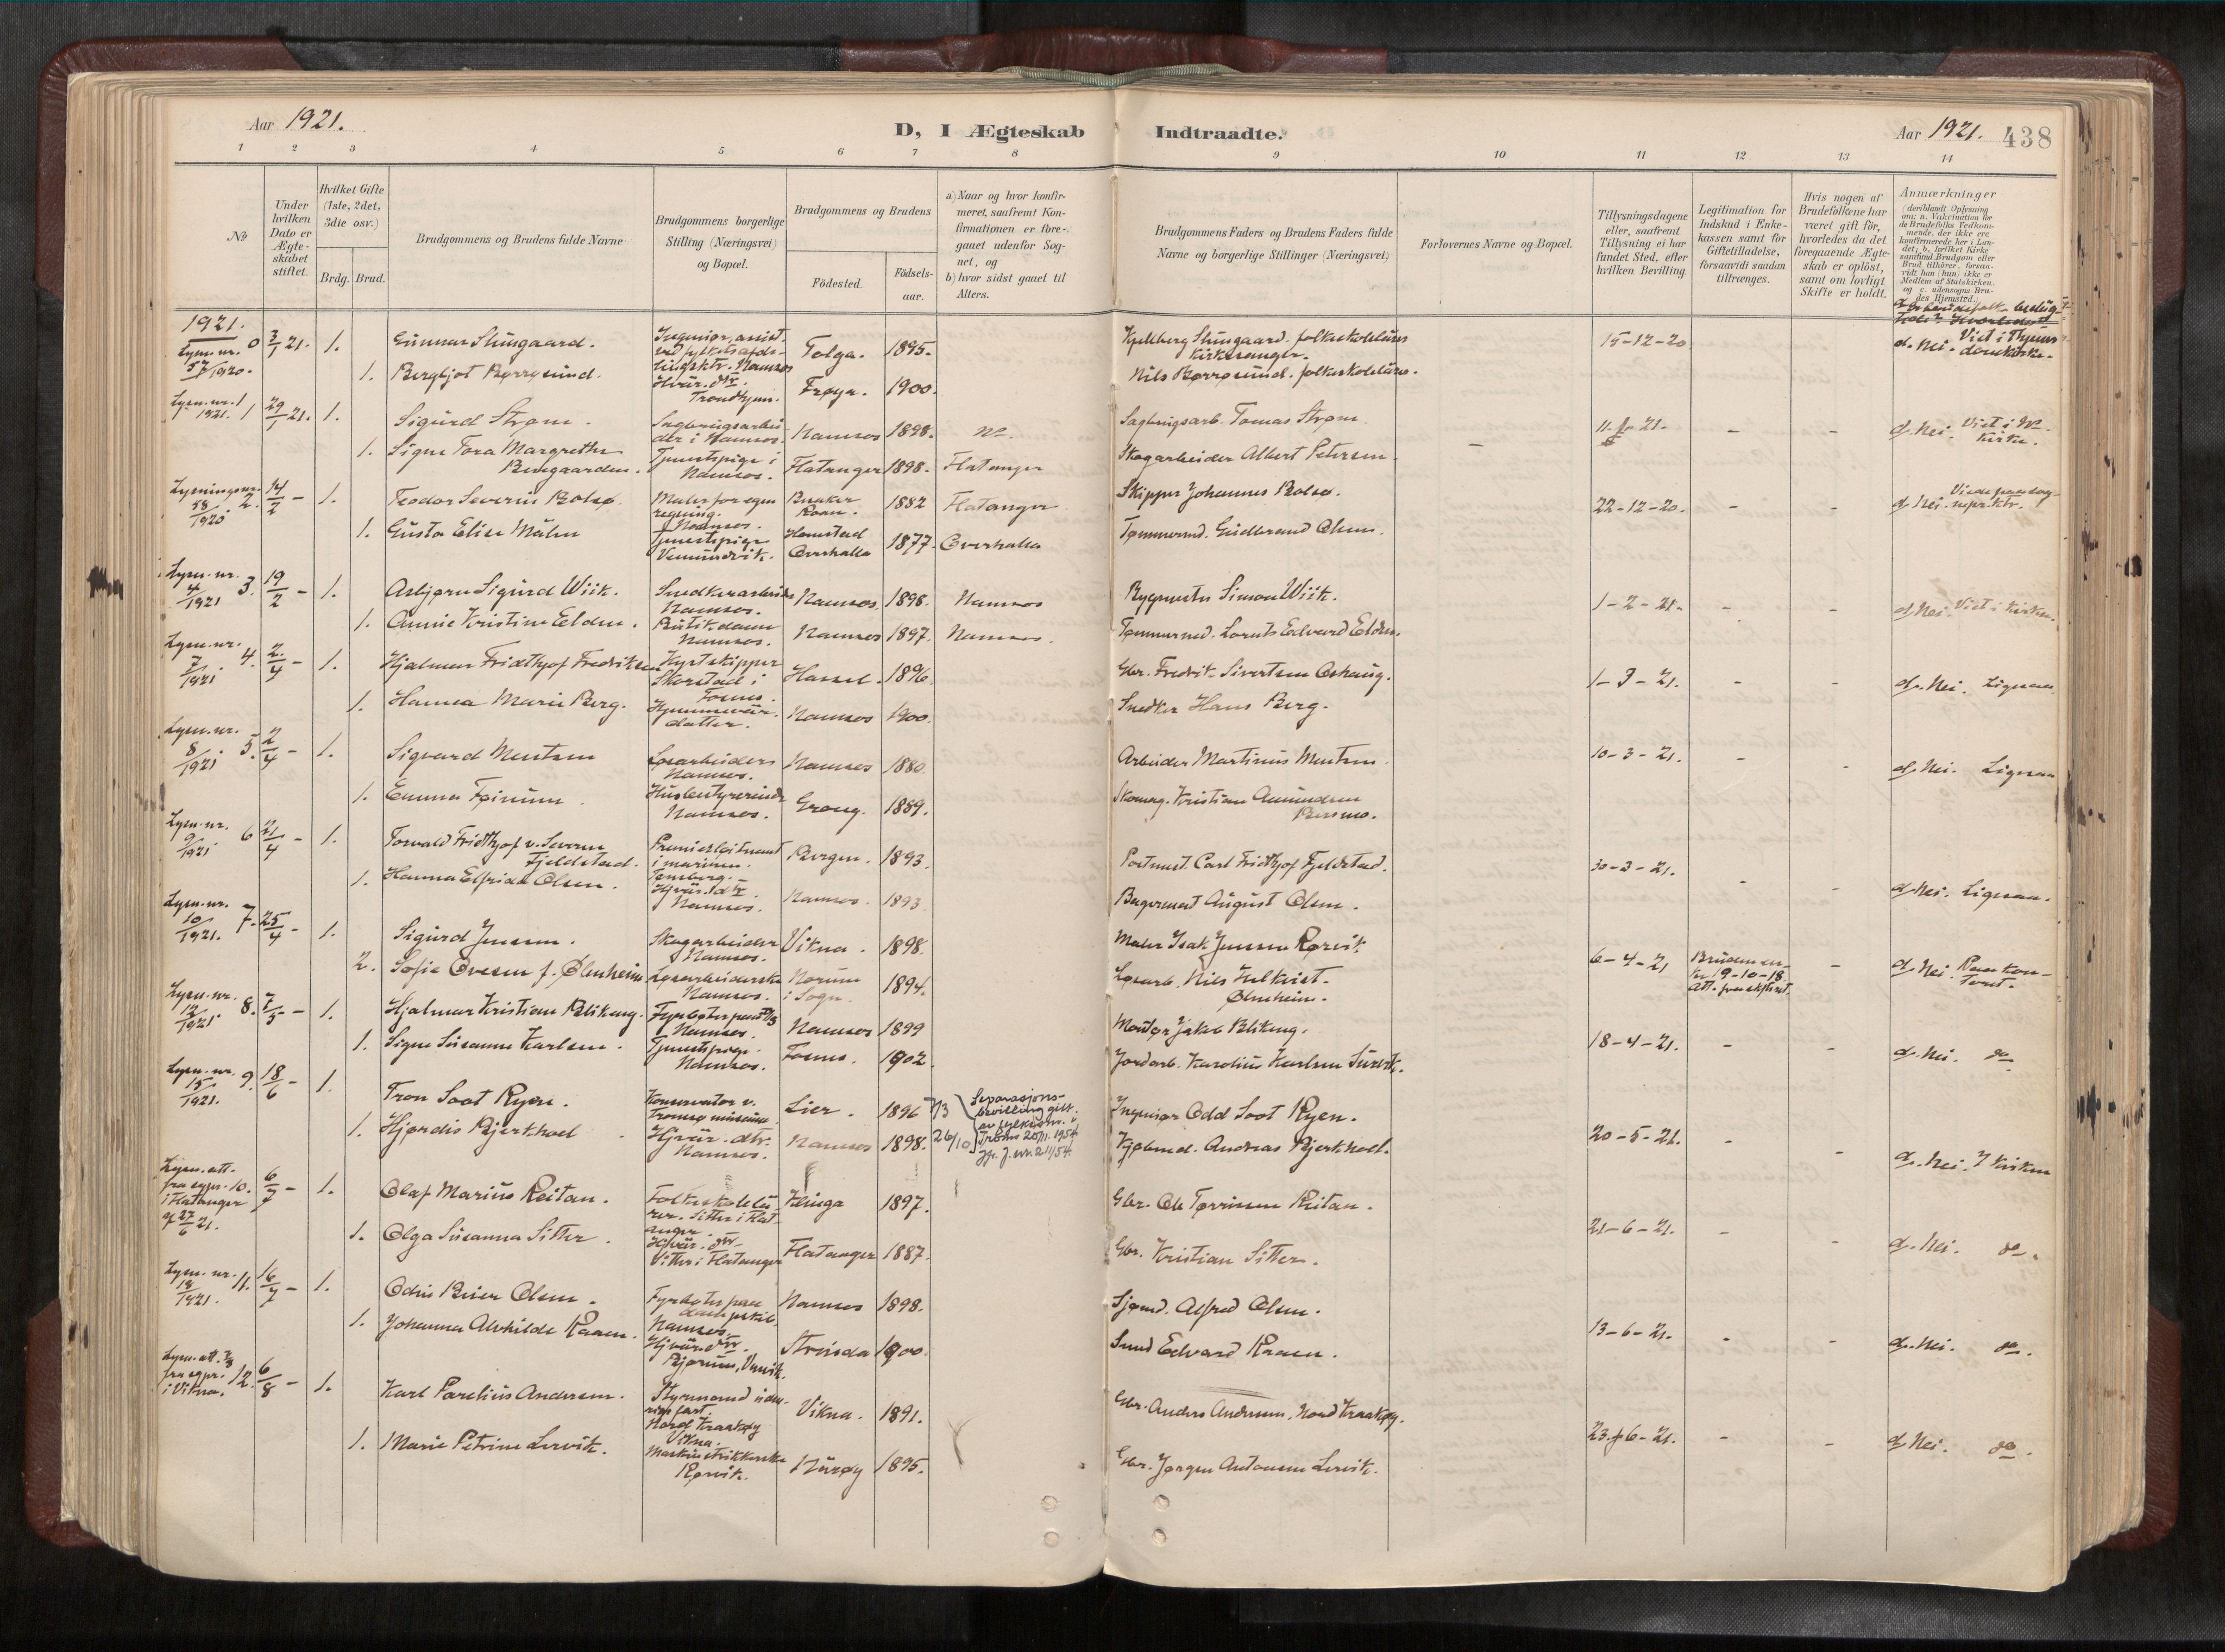 Aar 1921.
D, I Ægteskab Indtraadte.
Aar 1921. 438
1 2 3 4 5 6 7 8 9 10 11 12 13 14
No
Under hvilken Dato er Ægteskabet stiftet.
Hvilket Gifte (1ste, 2det, 3die osv.)
Brdg. Brud.
Brudgommens og Brudens fulde Navne
Brudgommens borgerlige Stilling (Næringsvei) og Bopæl.
Brudgommens og Brudens
Födested.
Födsels-aar.
a) Naar og hvor konfirmeret, saafremt Konfirmationen er foregaaet udenfor Sognet, og
b) hvor sidst gaaet til Alters.
Brudgommens Faders og Brudens Faders fulde Navne og borgerlige Stillinger (Næringsvei)
Forlovernes Navne og Bopæl.
Tillysningsdagene eller, saafremt Tillysning ei har fundet Sted, efter hvilken Bevilling.
Legitimation for Indskud i Enkekassen samt for Giftetilladelse, forsaavidt saadan tiltrænges.
Hvis nogen af Brudefolkene har været gift för, hvorledes da det foregaaende Ægteskab er oplöst, samt om lovligt Skifte er holdt.
Anmærkninger
(deriblandt Oplysning om: a. Vakcination for de Brudefolks Vedkommende, der ikke ere konfirmerede her i Landet; b. hvilket Kirkesamfund Brudgom eller Brud tilhörer, forsaavidt han (hun) ikke er Medlem af Statskirken, og c. udensogns Brudes Hjemsted.)
1921.
Lysn. nr. 57/1920. 0 3/1 21. 1. Gunnar Stungaard. Ingeniør, assist. ved fylkets Namsos Tolga. 1895. Kjelberg Stungaard. folkeskolelærer Kirkesanger. 15-12-20 d. Nei. Viet i Thjems domkirke.
1. Bergljot Børrøsund. Hjvær. dtr. Trondhjem. Frøya. 1900. Nils Børrøsund. folkeskolelærer.
Lysn. nr. 1/1921. 1 29/1 21. 1. Sigurd Strøm. Sagbrugsarbeider i Namsos. Namsos 1898. Sagbrugsarb. Tomas Strøm. 11-1-21. - - d. Nei. Viet i kirke.
1. Signe Tora Margrethe Tjenestpige i Namsos. Flatanger 1898. Flatanger Skogarbeider Albert Petersen. -
Lysningsnr. 58/1920 2. 14/2 - 1. Teodor Severin Bolsø. Maler for egen regning. Namsos. Roan. 1882 Flatanger Skipper Johannes Bolsø. 22-12-20. - - d. Nei.
1. Gusta Elise Målen Tjenestpige Vemundvik. Overhalla 1877. Overhalla Tømmermd. Gudbrand Olsen.
Lysn. nr. 4/1921 3. 19/2 - 1. Asbjørn Sigurd Wiik. Snedkerarbeider Namsos. Namsos. 1898. Namsos Bygmester Simon Wiik. 1-2-21. - - d. Nei. Viet i kirken.
1. Annie Kristine Elden. Butikdame Namsos. Namsos 1897. Namsos. Tømmermd. Lorents Edvard Elden.
Lysn. nr. 7/1921 4. 2/4 - 1. Hjalmar Fridthjof Fredriksen Skorstad i Fosnes. Hassel. 1896 Gbr. Fredrik Sivertsen Oshaug. 1-3-21. - - d. Nei. Lignaa
1. Hanna Marie Berg. Hjemmevær. datter. Namsos 1900. Snedker Hans Berg.
Lysn. nr. 8/1921 5. 2/4 - 1. Sigvard Mentsen Løsarbeider Namsos. Namsos 1880. Arbeider Martinus Mentsen. 10-3-21. - - d. Nei. Lignaa
1. Emma Foinum. Husbestyrerinde Namsos. Grong. 1889. Skomag. Kristian Amundsen
Lysn. nr. 9/1921 6 21/4 - 1. Torvald Fridthjof v. Severen Fjeldstad. Premierløitnant i marinen. Tønsberg. Bergen. 1893. Postmest. Carl Fridthjof Fjeldstad. 30-3-21. - - d. Nei. Lignaa.
1. Hanna Elfrida Olsen. Hjvær. dtr. Namsos. Namsos. 1893 Bagermest August Olsen.
Lysn. nr. 10/1921. 7. 25/4 - 1. Sigurd Jenssen. Skogarbeider Namsos. Vikna. 1898. Maler Isak Jenssen Rørvik 6-4-21 19-10-18. - d. Nei.
2. Sofie Ovesen f. Ølmheim. Løsarbeiderske Namsos. Norum i Sogn. 1894. Løsarb. Nils Hulkvist Ølmheim.
Lysn. nr. 12/1921. 8. 7/5 - 1. Hjalmar Kristian Blikeng. Fyrbøter Namsos. Namsos 1899 Montør Jakob Blikeng. 18-4-21. - - d. Nei. do.
1. Signe Susanne Karlsen. Tjenestpige. Namsos. Fosnes. 1902. Jordarb. Karolius Karlsen
Lysn. nr. 15/1921. 9. 18/6 - 1. Tron Soot Ryen. Konservator v. Tromsø museum. Lier. 1896 7/3 Separasjonsbevilling gitt av fylkesm. i Troms 20/11. 1954. Jfr. J. nr. 211/54. Ingeniør Odd Soot Ryen. 20-5-21. - - d. Nei. I kirken
1. Hjørdis Bjerkhoel Hjvær. dtr. Namsos. Namsos 1898. 26/10 Kjøbmd. Andreas Bjerkhoel.
Lysn. att. fra sogpr. i Flatanger 27/6 21. 10. 6/7 - 1. Olaf Marius Reitan. Folkeskolelærer. Sitter i Flatanger. Klinga 1897. Gbr. Ole Tørrissen Reitan. 21-6-21. - - d. Nei. do.
1. Olga Susanna Sitter. Hjvær. dtr. Sitter i Flatanger Flatanger 1887. Gbr. Kristian Sitter.
Lysn. nr. 18/1921. 11. 16/7 - 1. Odin Olsen. Fyrbøter paa dampskib. Namsos Namsos 1898. Sjømd. Alfred Olsen. 13-6-21. - - d. Nei. do.
1. Johanna Alvhilde Raaen. Hjvær. dtr. Bjørum, Strinda 1900. Smed Edvard Raaen.
Lysn. att. fra sogpr. i Vikna. 12. 6/8 - 1. Karl Parelius Andersen. Styrmand Nord Kraakøy Vikna. Vikna. 1891. Gbr. Anders Andersen, Nord Kraakøy. 23-6-21. - - d. Nei. do.
1. Marie Petrine Lervik. Maskinstrikkerske Rørvik. Nærøy 1895. Gbr. Jørgen Antonsen Lervik.